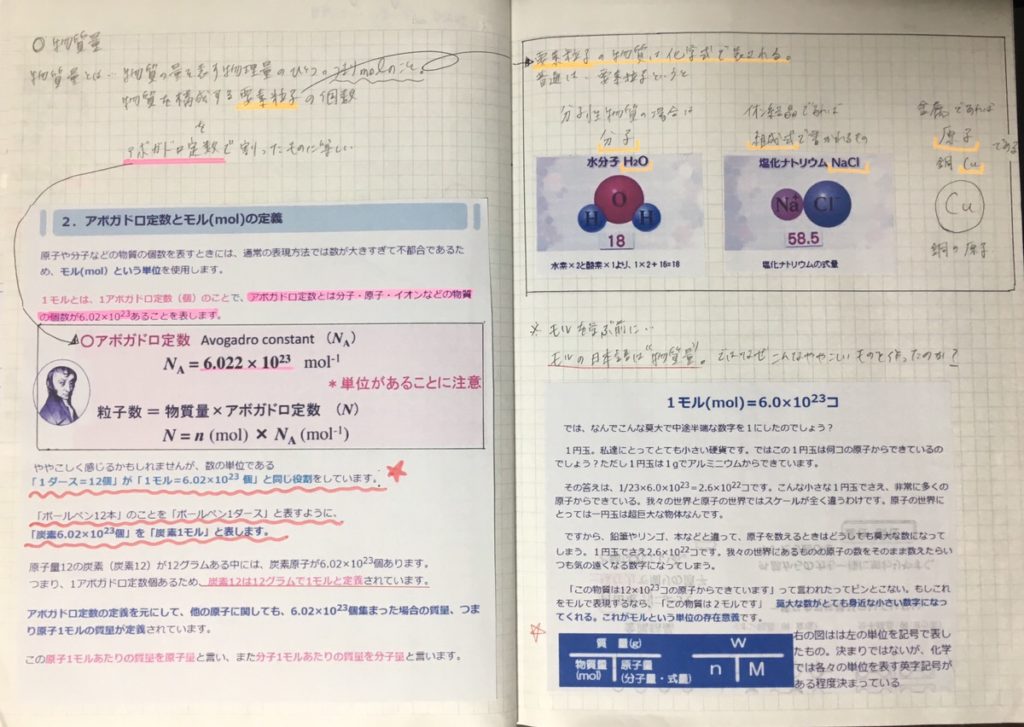 ○ 物質量
物質量とは… 物質の量を表す物理量のひとつ。つまりmolのこと。
物質を構成する要素粒子の個数
を
アボガドロ定数で割ったものに等しい
2．アボガドロ定数とモル(mol)の定義
原子や分子などの物質の個数を表すときには、通常の表現方法では数が大きすぎて不都合であるた
め、モル(mol) という単位を使用します。
１モルとは、1アボガドロ定数（個）のことで、アボガドロ定数とは分子・原子・イオンなどの物質
の個数が6.02×10²³あることを表します。
○アボガドロ定数 Avogadro constant （NA）
NA = 6.022 × 10²³ mol⁻¹
＊単位があることに注意
粒子数 ＝ 物質量 × アボガドロ定数 （N）
N = n (mol) × NA (mol⁻¹)
ややこしく感じるかもしれませんが、数の単位である
「１ダース＝12個」が「１モル＝6.02×10²³ 個」と同じ役割をしています。
「ボールペン12本」のことを「ボールペン1ダース」と表すように、
「炭素6.02×10²³個」を「炭素1モル」と表します。
原子量12の炭素（炭素12）が12グラムある中には、炭素原子が6.02×10²³個あります。
つまり、1アボガドロ定数個あるため、炭素12は12グラムで1モルと定義されています。
アボガドロ定数の定義を元にして、他の原子に関しても、6.02×10²³個集まった場合の質量、つま
り原子1モルの質量が定義されています。
この原子1モルあたりの質量を原子量と言い、また分子1モルあたりの質量を分子量と言います。
要素粒子の物質は化学式で表される。
普通は… 要素粒子というと
分子性物質の場合は
分子
イオン結晶であれば
組成式で書かれるもの
金属であれば
原子
である
水分子 H₂O
H O H
18
水素×2と酸素×1より、1×2＋16=18
塩化ナトリウム NaCl
Na⁺ Cl⁻
58.5
塩化ナトリウムの式量
銅 Cu
Cu
銅の原子
＊ モルを学ぶ前に…
モルの日本語は"物質量"。ではなぜ こんなややこしい ものを作ったのか？
１モル(mol)＝6.0×10²³コ
では、なんでこんな莫大で中途半端な数字を１にしたのでしょう？
１円玉。私達にとってとても小さい硬貨です。ではこの１円玉は何コの原子からできているの
でしょう？ただし１円玉は１gでアルミニウムからできています。
その答えは、1/23×6.0×10²³＝2.6×10²²コです。こんな小さな１円玉でさえ、非常に多くの
原子からできている。我々の世界と原子の世界ではスケールが全く違うわけです。原子の世界に
とっては一円玉は超巨大な物体なんです。
ですから、鉛筆やリンゴ、本などと違って、原子を数えるときはどうしても莫大な数になって
しまう。１円玉でさえ2.6×10²²コです。我々の世界にあるものの原子の数をそのまま数えたらいつ
も気の遠くなる数字になってしまう。
「この物質は12×10²³コの原子からできています」って言われたってピンとこない。もしこれ
をモルで表現するなら、「この物質は２モルです」 莫大な数がとても身近な小さい数字になっ
てくれる。これがモルという単位の存在意義です。
質 量(g)
物質量(mol) 原子量(分子量・式量)
W
n M
右の図はは左の単位を記号で表し
たもの。決まりではないが、化学
では各々の単位を表す英字記号が
ある程度決まっている